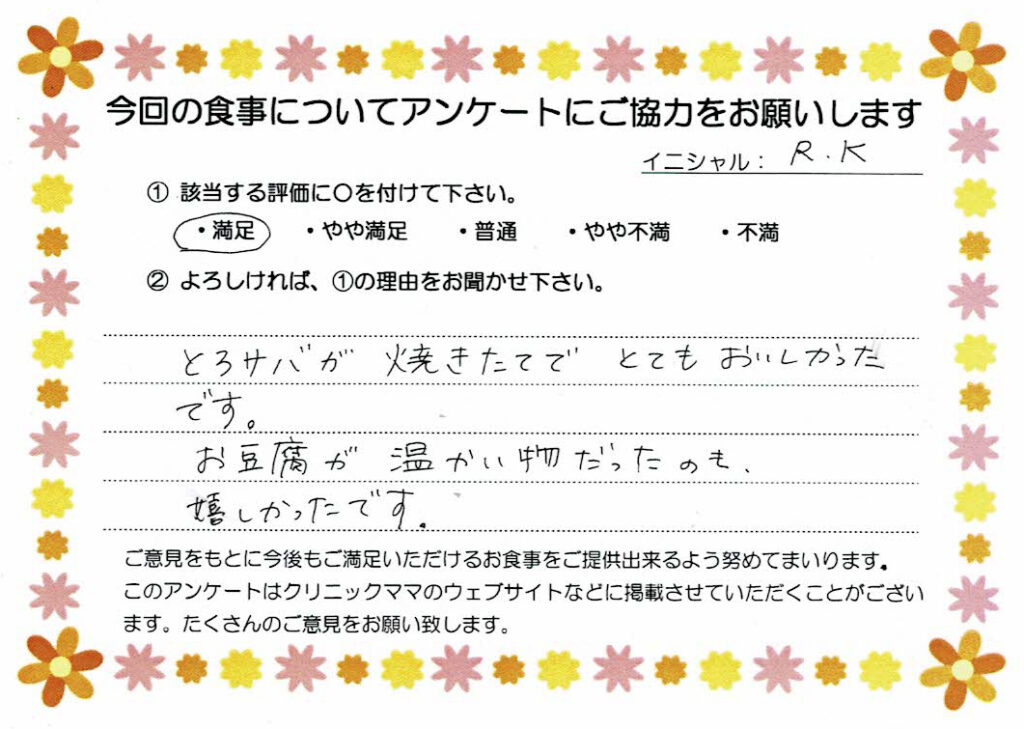 今回の食事についてアンケートにご協力をお願いします
イニシャル： R.K
① 該当する評価に〇を付けて下さい。
・満足 ・やや満足 ・普通 ・やや不満 ・不満
② よろしければ、①の理由をお聞かせ下さい。
とろサバが 焼きたてで とても おいしかった
です。
お豆腐が 温かい物だったのも、
嬉しかったです。
ご意見をもとに今後もご満足いただけるお食事をご提供出来るよう努めてまいります。
このアンケートはクリニックママのウェブサイトなどに掲載させていただくことがござい
ます。たくさんのご意見をお願い致します。